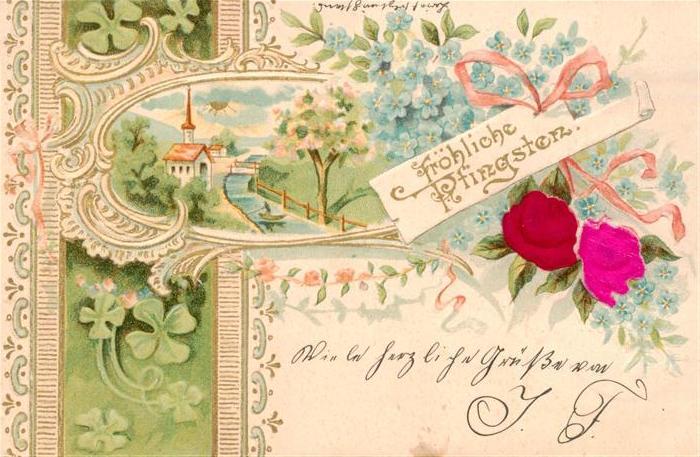 Fröhliche
Pfingsten.
Viele herzliche Grüße von
J. F.